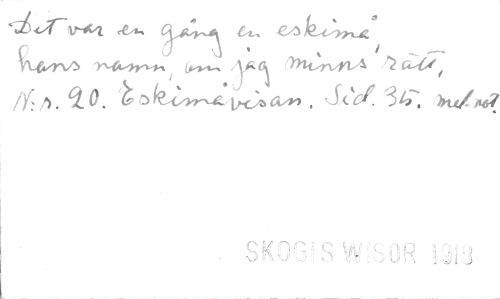 Det var en gång en eskimå,
hans namn, om jag minns rätt,
N:r. 20. Eskimåvisan. Sid. 35. med not.
SKOGIS WISOR 1919